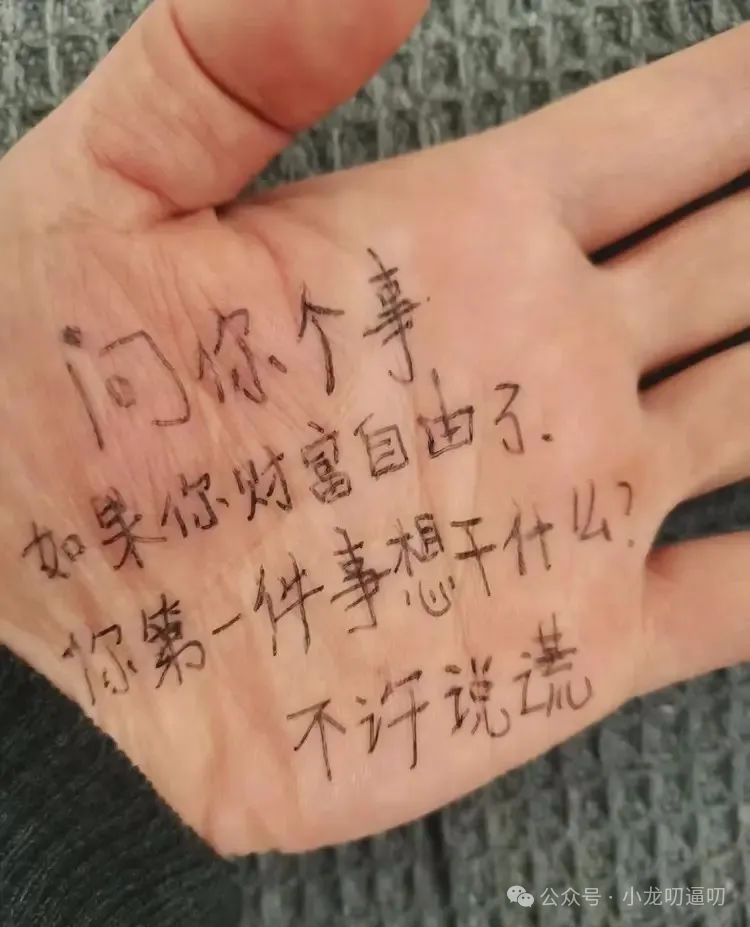 问你个事
如果你财富自由了.
你第一件事想干什么?
不许说谎
公众号·小龙叨逼叨